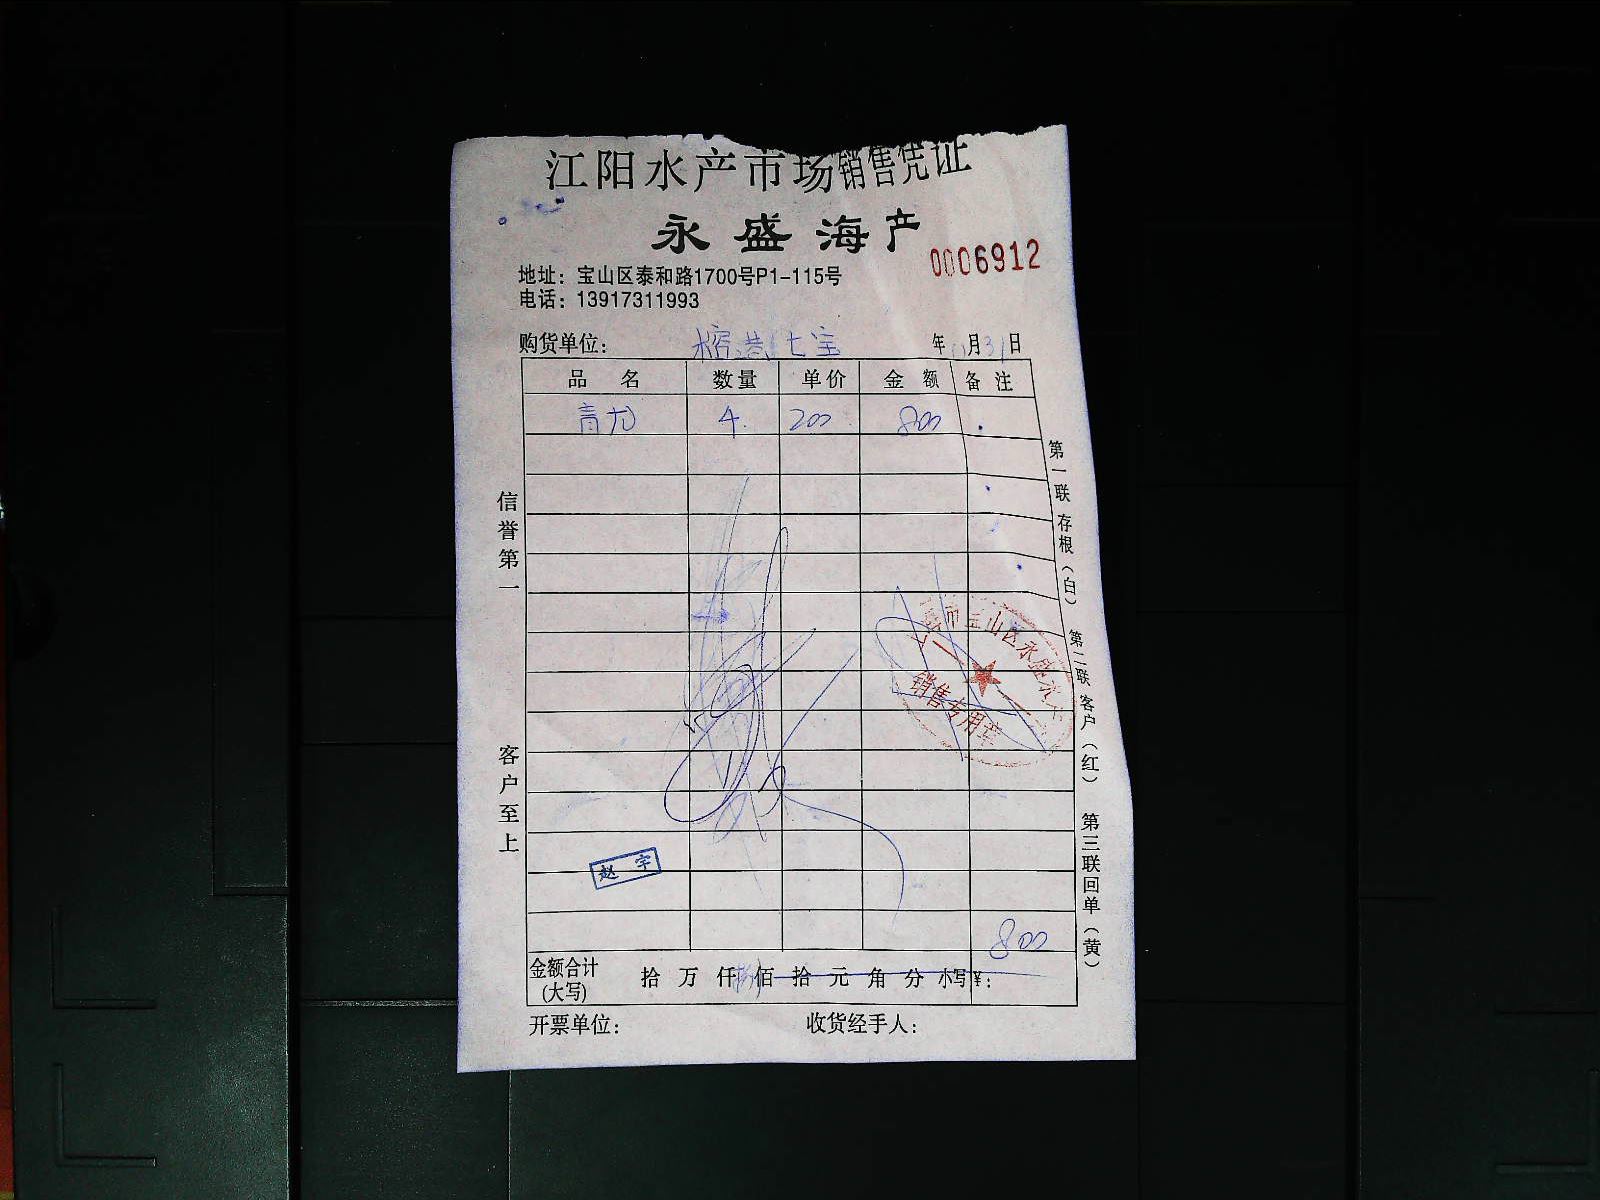 江阳水产市场销售凭证
永盛海产
0006912
地址：宝山区泰和路1700号P1-115号
电话：13917311993
购货单位： 榕港七宝 年 月31日
品 名 数量 单价 金 额 备 注
青龙 4 200 800
信誉第一 客户至上
第一联存根（白） 第二联客户（红） 第三联回单（黄）
市宝山区永盛水
销售专用章
赵宇
800
金额合计(大写) 拾 万 仟 捌 佰 拾 元 角 分 小写¥：
开票单位： 收货经手人：